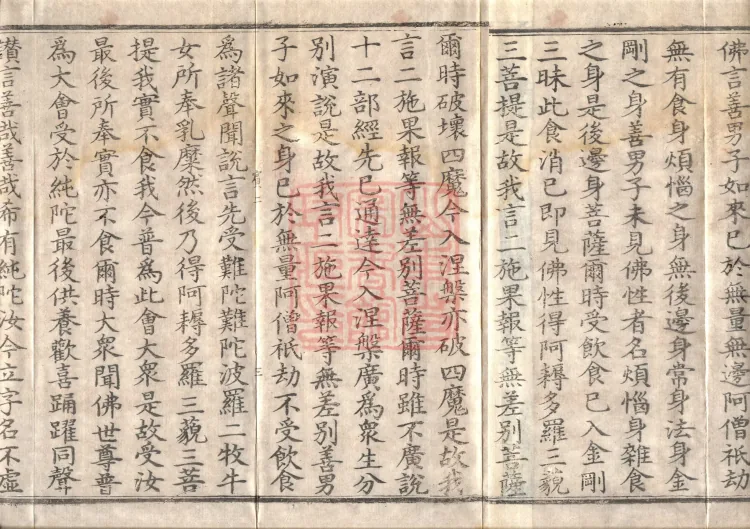 佛言善男子如來已於無量無邊阿僧祇劫
無有食身煩惱之身無後邊身常身法身金
剛之身善男子未見佛性者名煩惱身雜食
之身是後邊身菩薩爾時受飲食已入金剛
三昧此食消已即見佛性得阿耨多羅三藐
三菩提是故我言二施果報等無差別菩薩
爾時破壞四魔今入涅槃亦破四魔是故我
言二施果報等無差別菩薩爾時雖不廣說
十二部經先已通達今入涅槃廣爲衆生分
別演說是故我言二施果報等無差別善男
子如來之身已於無量阿僧祇劫不受飲食
三
爲諸聲聞說言先受難陀難陀波羅二牧牛
女所奉乳糜然後乃得阿耨多羅三藐三菩
提我實不食我今普爲此會大衆是故受汝
最後所奉實亦不食爾時大衆聞佛世尊普
爲大會受於純陀最後供養歡喜踊躍同聲
讚言善哉善哉希有純陀汝今立字名不虛